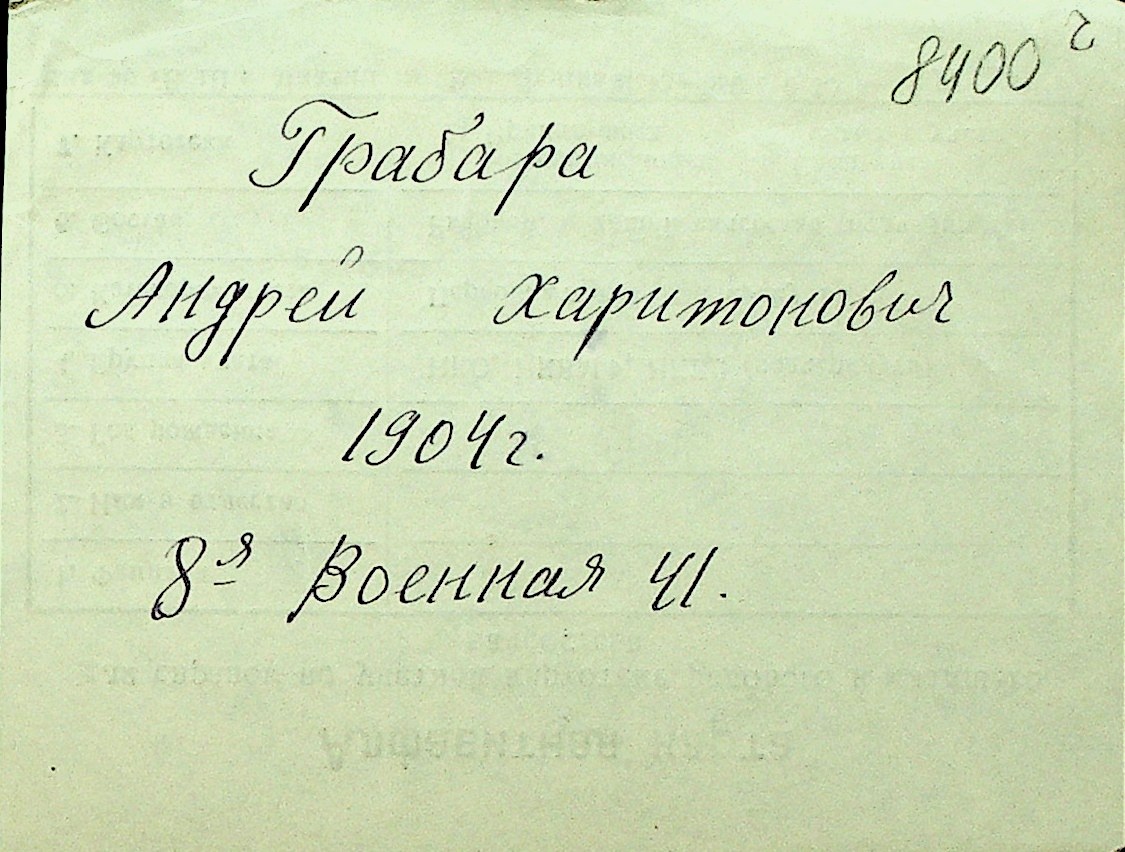 8400 г
Грабара
Андрей Харитонович
1904 г.
8я Военная 41.